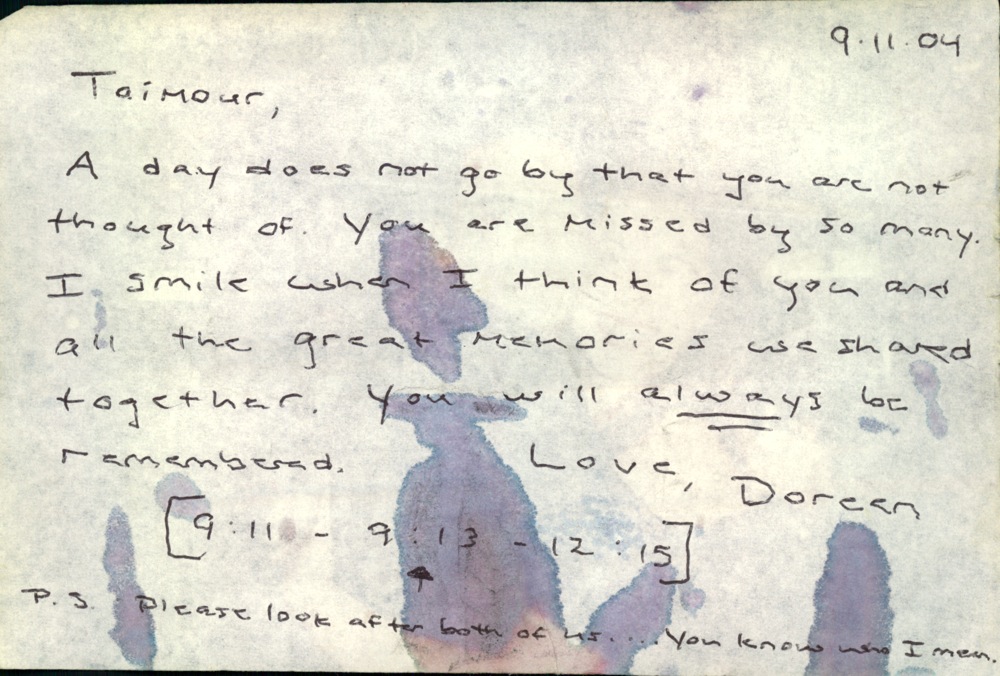 9.11.04
Taimour,
A day does not go by that you are not
thought of. You are missed by so many.
I smile when I think of you and
all the great memories we shared
together. You will always be
remembered. Love, Doreen
[9:11 - 9:13 - 12:15]
P.S. Please look after both of us.... You know who I mean.